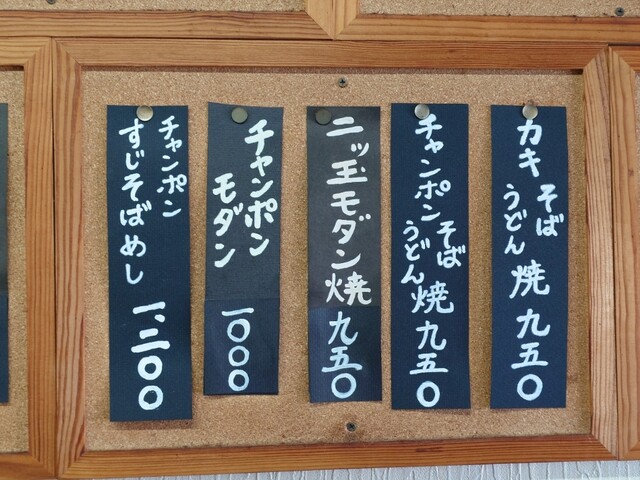 カキ そば うどん 焼 九五〇
チャンポン そば うどん 焼 九五〇
二ッ玉モダン焼 九五〇
チャンポン
モダン
一〇〇〇
チャンポン
すじそばめし
一、三〇〇